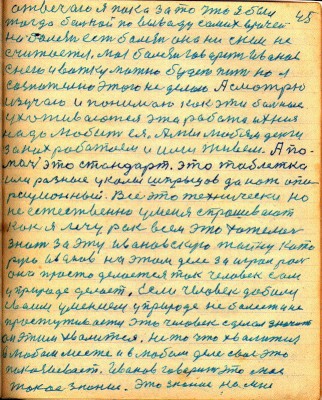 45
отвечаю я пока за то это я был
тогда больной по выводу самих врачей
но болезнь есть болезнь она ни с кем не
считается. Моя болезнь говорит Иванов
снегом
можно будет пить но я
сознательно этого не делаю А смотрю
изучаю и понимаю как эти больные
ухаживаются эта работа их ихняя
надо любить ея. А мы любям деньги
за них работаем и ими живем. А по-
мощь это стандарт. Это таблетка
или разные уколы шпрыцов да нож опе-
рационный. Все это технически но
не естественно у меня спрашивают
как я лечу рак всем это хотелось
знать за эту ивановскую тайну като
рую Иванов на этом деле заиграл роль
она просто делается так человек сам
у природе делает. Если человек добился
своим умением у природе не болеть и не
простуживаться это человек сделал значить
он этим хвалится. Не то что хвалится
в любом месте и в любом деле свое это
показывает. Иванов говорит это мое
такое знание. Это знание на мне